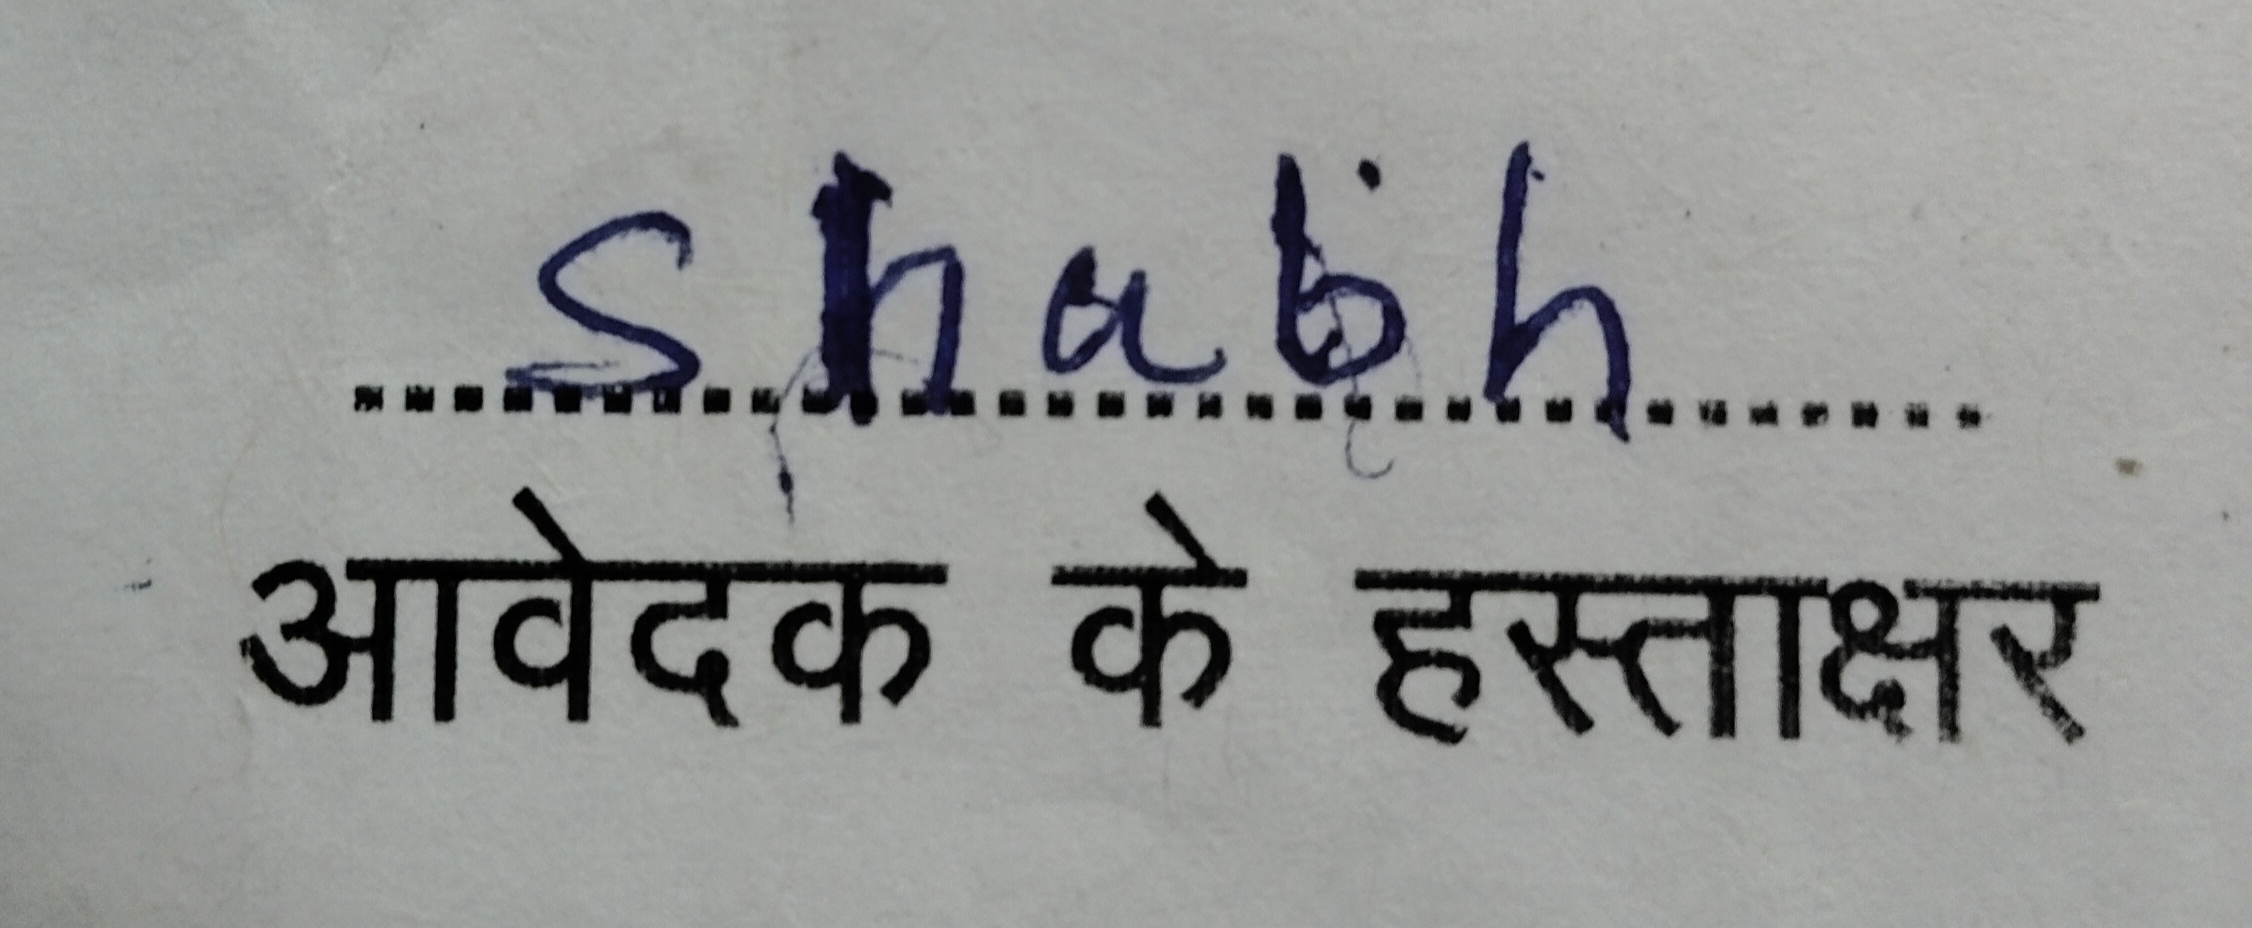 shabh
आवेदक के हस्ताक्षर